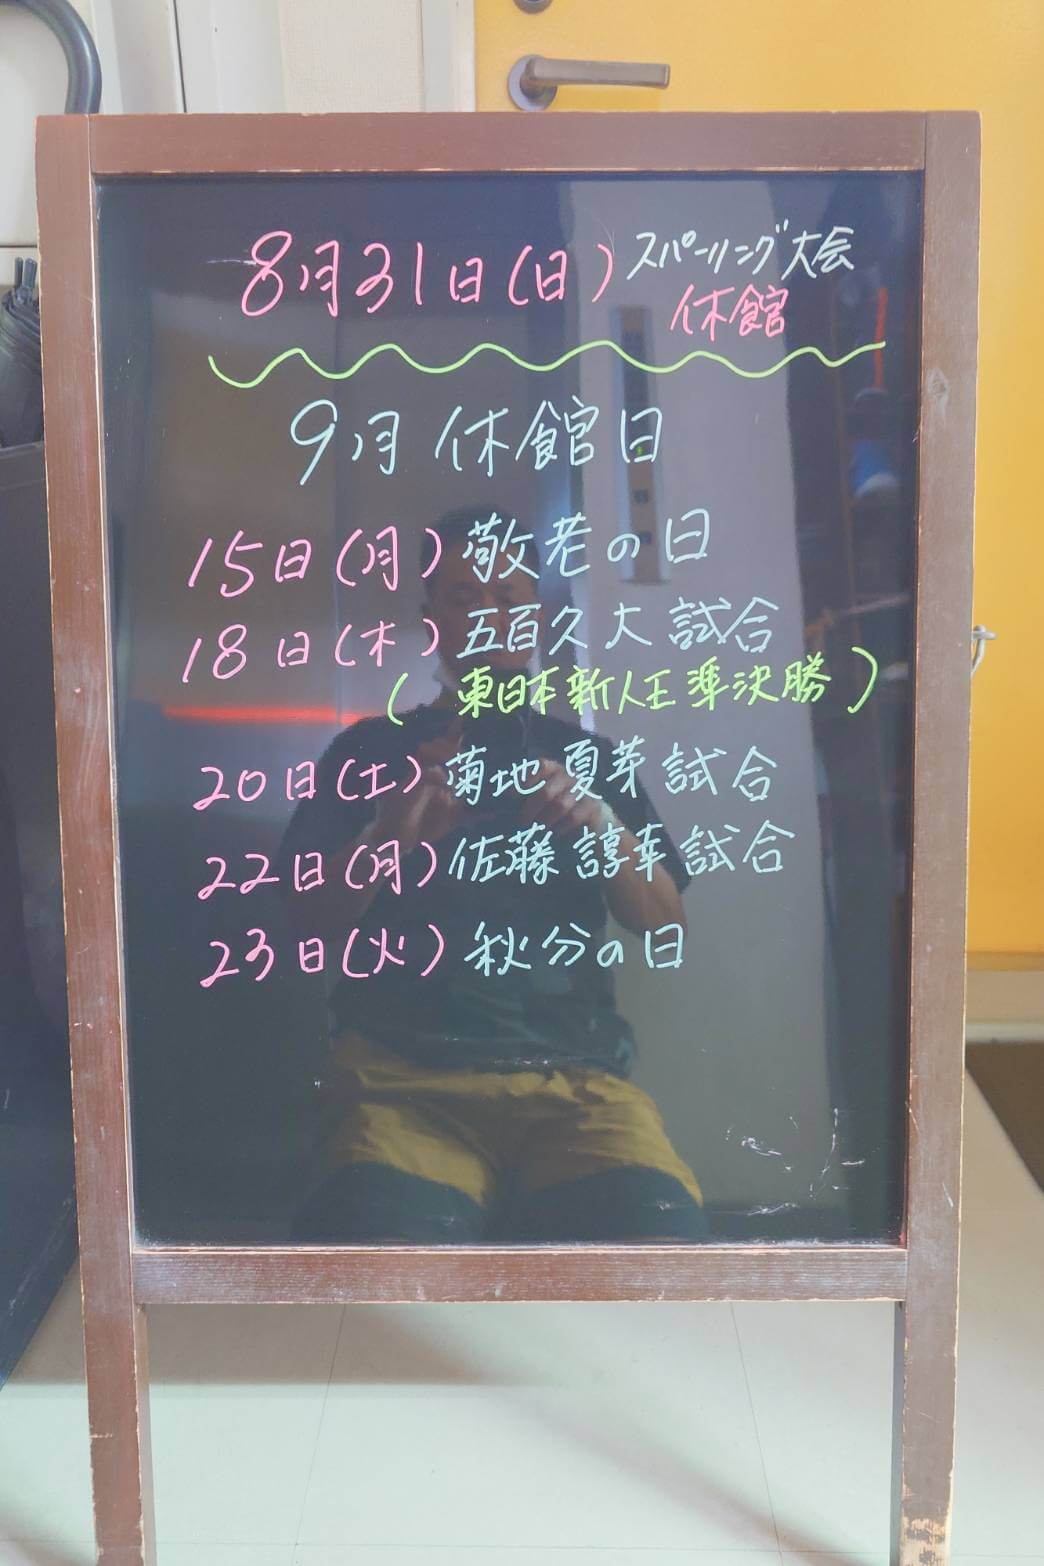 8月31日(日) スパーリング大会
休館
9月 休館日
15日(月) 敬老の日
18日(木) 五百久大 試合
(東日本新人王準決勝)
20日(土) 菊地 夏芽 試合
22日(月) 佐藤 諄幸 試合
23日(火) 秋分の日